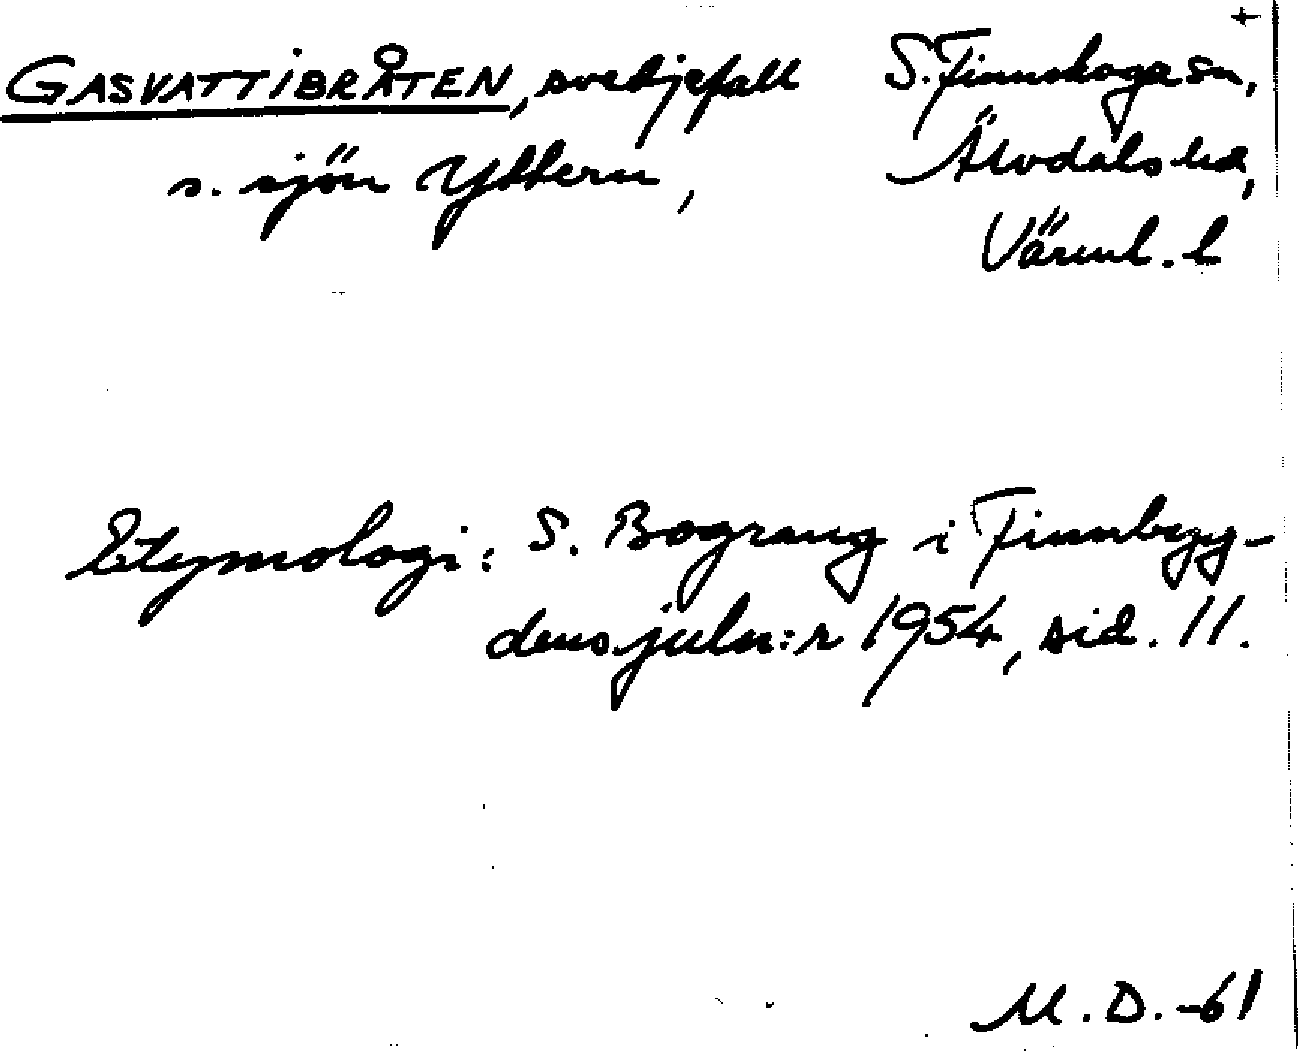 GASVATTIBRÅTEN, svedjefall S. Finnskoga sn,
s. sjön Yttern, Älvdals hd,
Värml. l
Etymologi: S. Bograng i Finnbygdens
julnr:r 1954, sid. 11.
M. D. -61